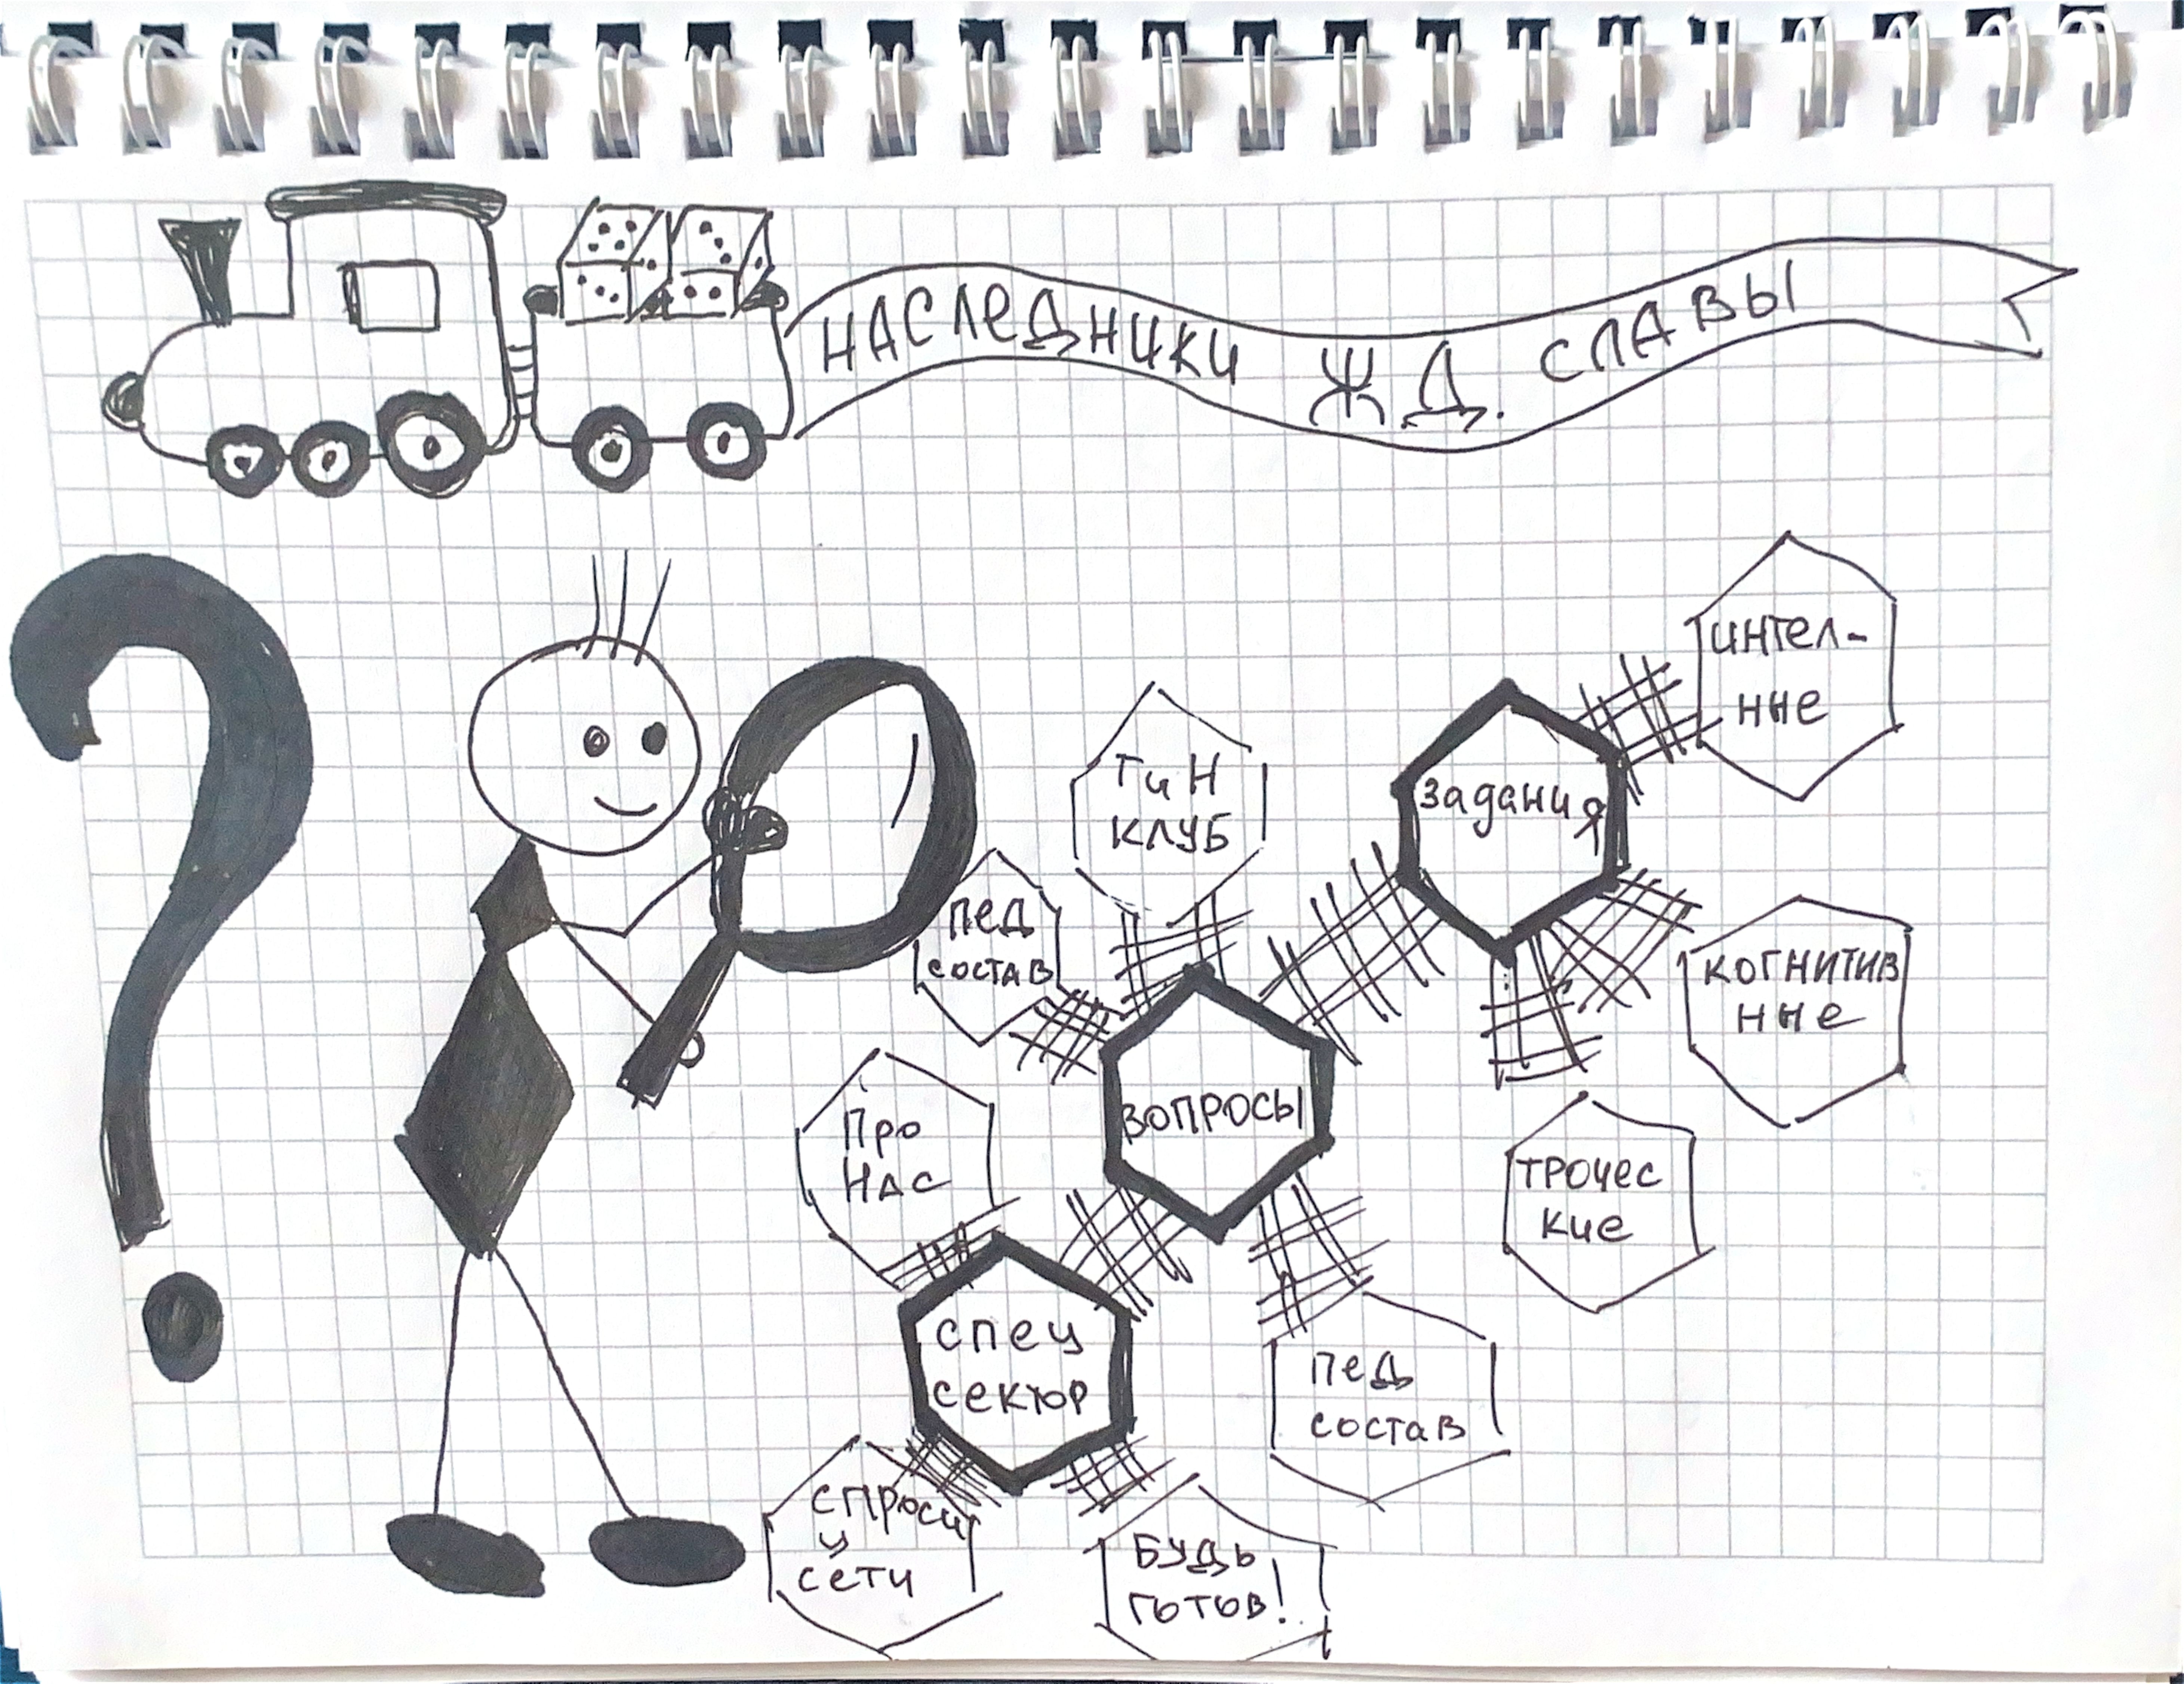 НАСЛЕДНИКИ Ж.Д. СЛАВЫ
ИНТЕЛ-
ННЕ
ЗАДАНИЯ
ТиН
КЛУБ
ПЕД
СОСТАВ
КОГНИТИВ
ННЕ
ВОПРОСЫ
ПРО
НАС
ТРОЧЕС
КИЕ
СПЕЦ
СЕКТОР
ПЕД
СОСТАВ
СПРОСИ
У
СЕТИ
БУДЬ
ГОТОВ!